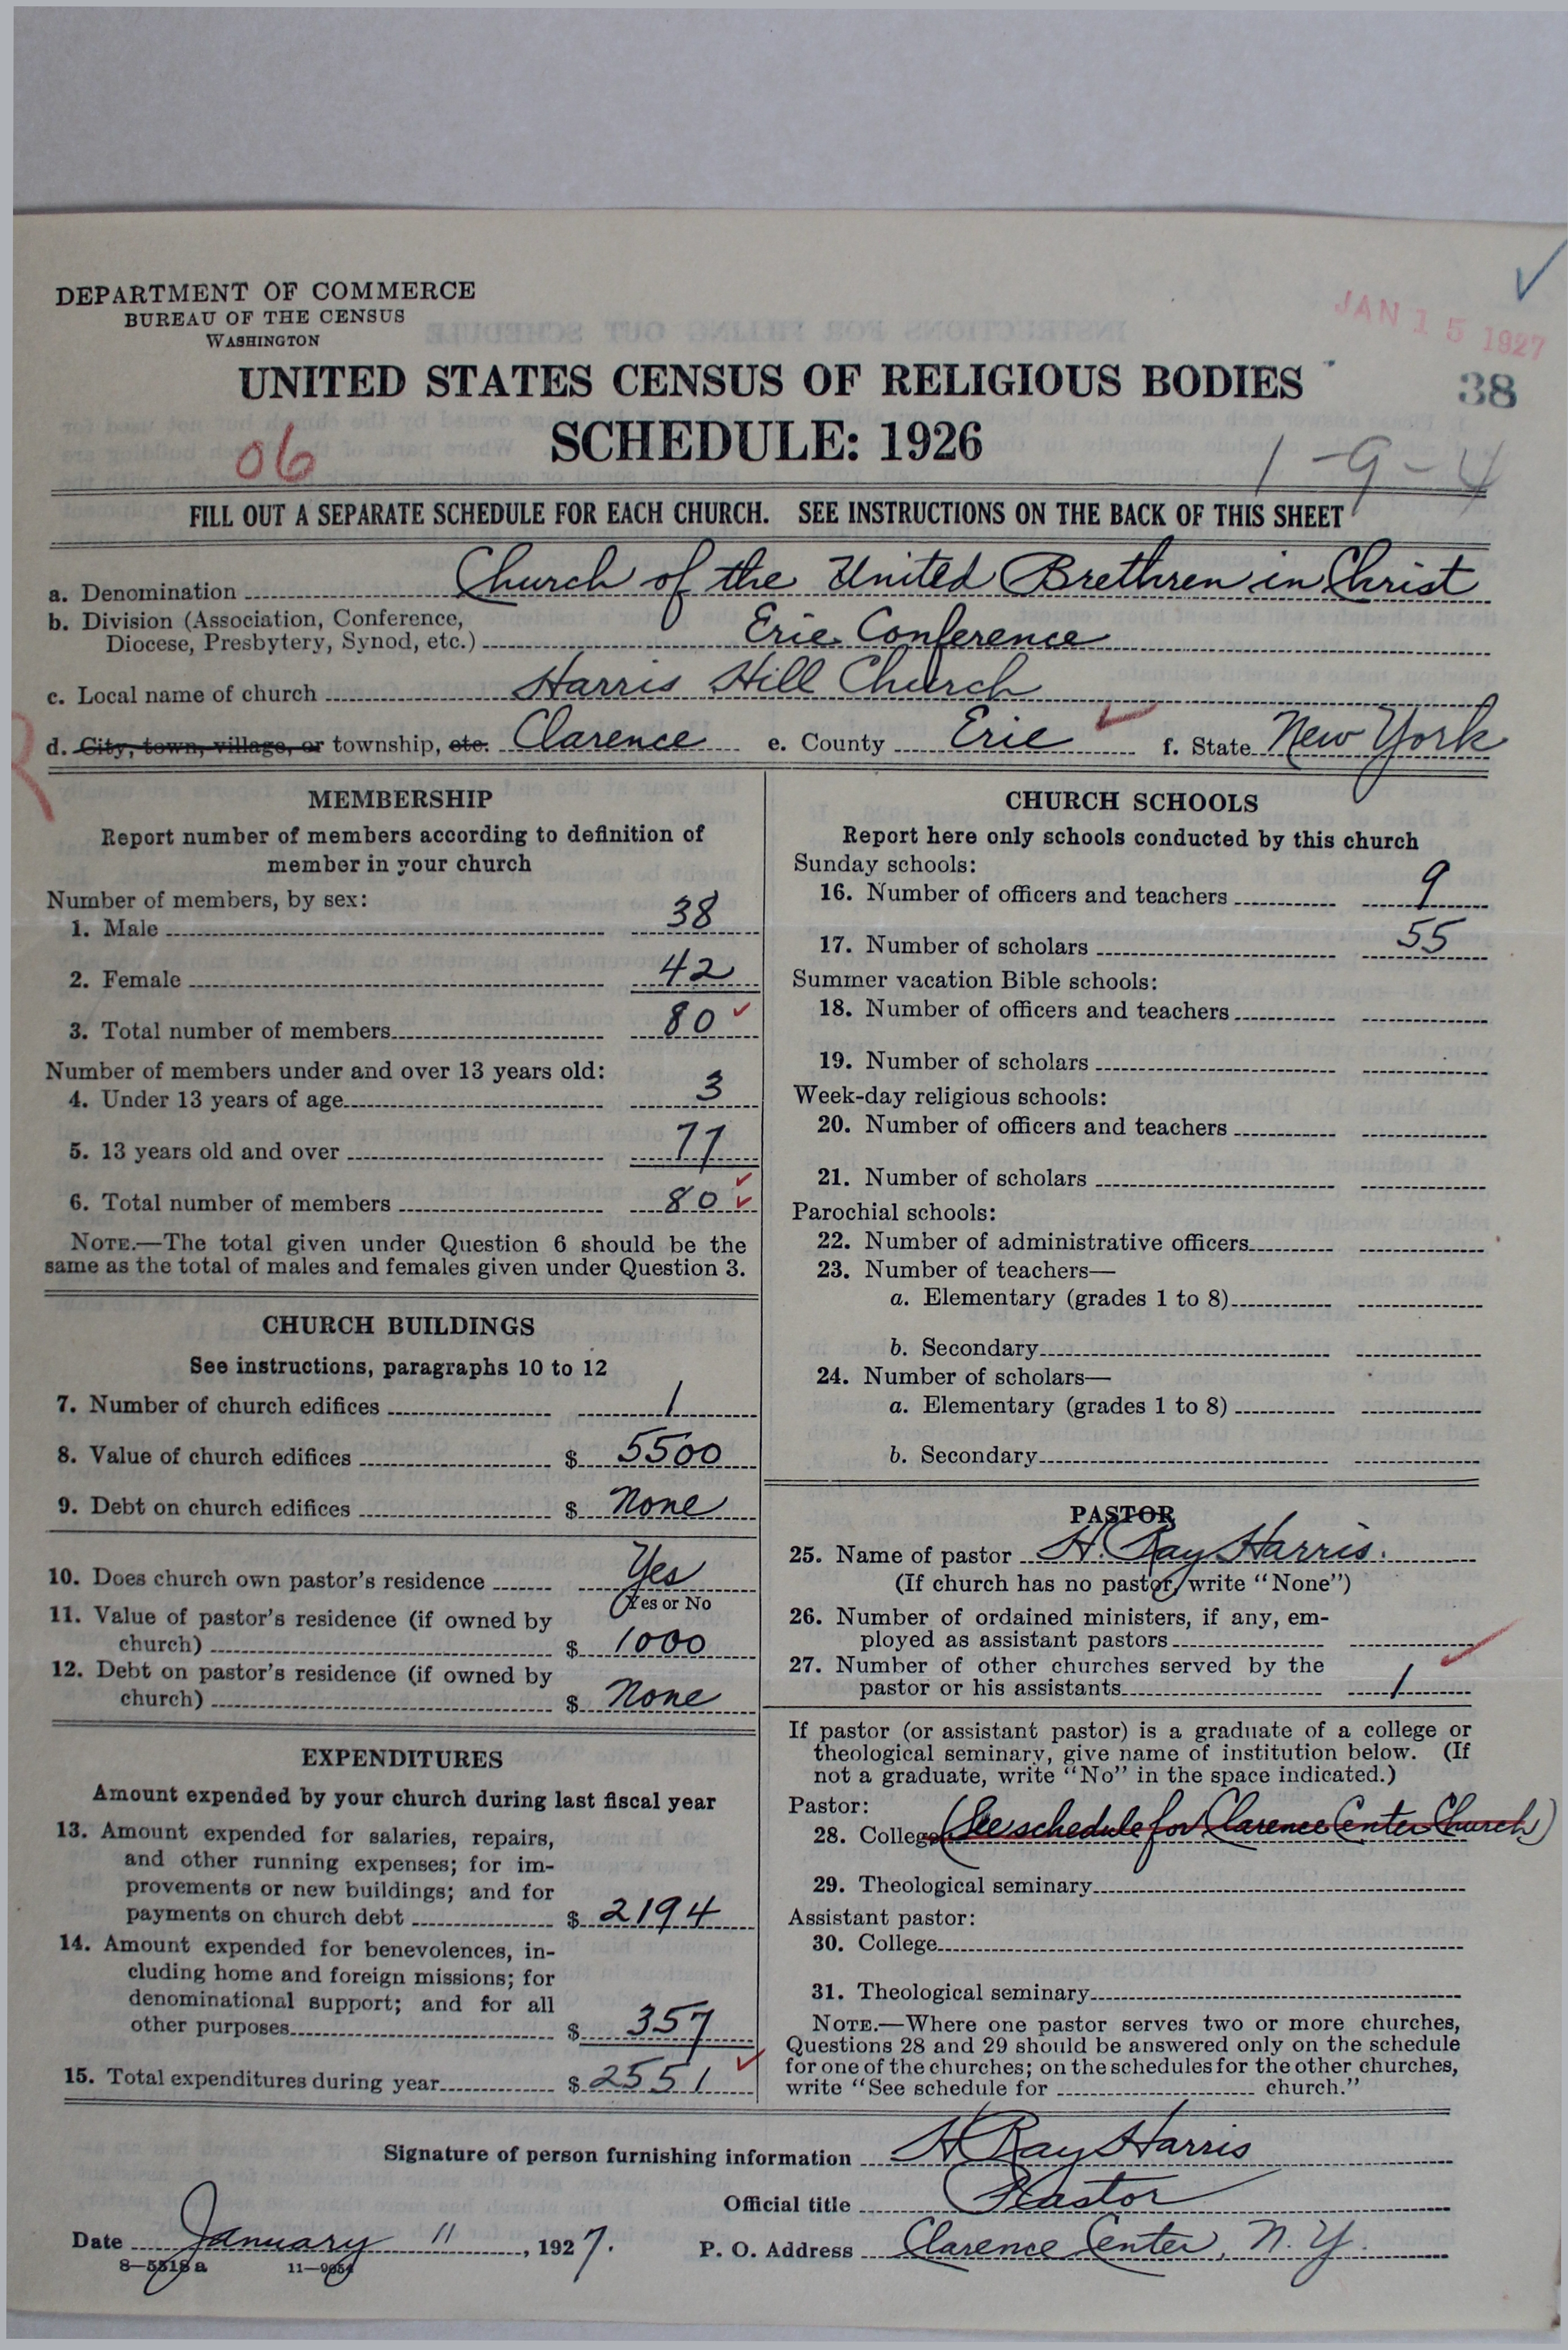 DEPARTMENT OF COMMERCE
BUREAU OF THE CENSUS
WASHINGTON
JAN 15 1927
UNITED STATES CENSUS OF RELIGIOUS BODIES
38
SCHEDULE: 1926
06
1-9-4
FILL OUT A SEPARATE SCHEDULE FOR EACH CHURCH. SEE INSTRUCTIONS ON THE BACK OF THIS SHEET
a. Denomination Church of the United Brethren in Christ
b. Division (Association, Conference,
Diocese, Presbytery, Synod, etc.) Erie Conference
c. Local name of church Harris Hill Church
d. City, town, village, or township, etc. Clarence e. County Erie f. State New York
MEMBERSHIP
Report number of members according to definition of
member in your church
Number of members, by sex:
1. Male 38
2. Female 42
3. Total number of members 80
Number of members under and over 13 years old:
4. Under 13 years of age 3
5. 13 years old and over 77
6. Total number of members 80
NOTE.—The total given under Question 6 should be the
same as the total of males and females given under Question 3.
CHURCH BUILDINGS
See instructions, paragraphs 10 to 12
7. Number of church edifices 1
8. Value of church edifices $ 5500
9. Debt on church edifices $ None
10. Does church own pastor's residence Yes
Yes or No
11. Value of pastor's residence (if owned by
church) $ 1000
12. Debt on pastor's residence (if owned by
church) $ None
EXPENDITURES
Amount expended by your church during last fiscal year
13. Amount expended for salaries, repairs,
and other running expenses; for im-
provements or new buildings; and for
payments on church debt $ 2194
14. Amount expended for benevolences, in-
cluding home and foreign missions; for
denominational support; and for all
other purposes $ 357
15. Total expenditures during year $ 2551
CHURCH SCHOOLS
Report here only schools conducted by this church
Sunday schools:
16. Number of officers and teachers 9
17. Number of scholars 55
Summer vacation Bible schools:
18. Number of officers and teachers
19. Number of scholars
Week-day religious schools:
20. Number of officers and teachers
21. Number of scholars
Parochial schools:
22. Number of administrative officers
23. Number of teachers—
a. Elementary (grades 1 to 8)
b. Secondary
24. Number of scholars—
a. Elementary (grades 1 to 8)
b. Secondary
PASTOR
25. Name of pastor H. Ray Harris.
(If church has no pastor, write "None")
26. Number of ordained ministers, if any, em-
ployed as assistant pastors
27. Number of other churches served by the
pastor or his assistants 1
If pastor (or assistant pastor) is a graduate of a college or
theological seminary, give name of institution below. (If
not a graduate, write "No" in the space indicated.)
Pastor:
28. College (See schedule for Clarence Center Church)
29. Theological seminary
Assistant pastor:
30. College
31. Theological seminary
NOTE.—Where one pastor serves two or more churches,
Questions 28 and 29 should be answered only on the schedule
for one of the churches; on the schedules for the other churches,
write "See schedule for church."
Signature of person furnishing information H Ray Harris
Official title Pastor
Date January 11, 1927. P. O. Address Clarence Center, N. Y.
8—5518a 11—9654